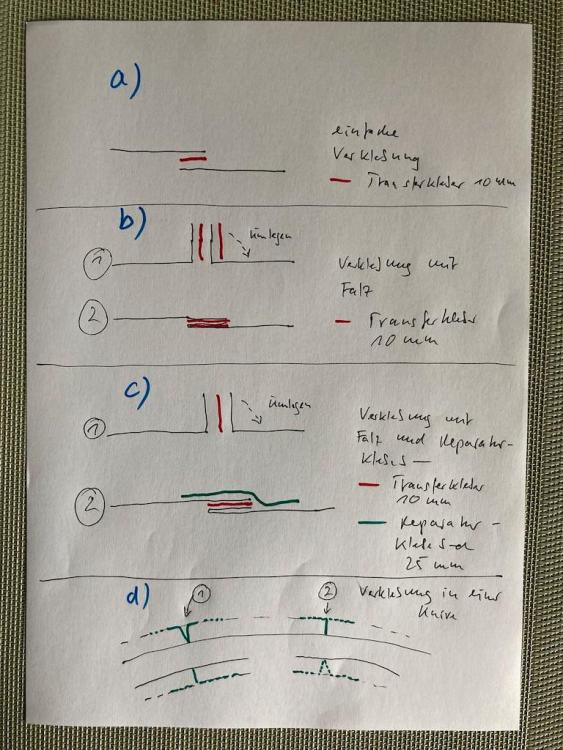 a)
einfache
Verklebung
Transferkleber 10 mm
b)
1
umlegen
Verklebung mit
Falz
2
Transferkleber
10 mm
c)
1
umlegen
Verklebung mit
Falz und Reparatur-
Transferkleber
10 mm
2
Reparatur-
25 mm
d)
1
2
Verklebung in einer
Kurve